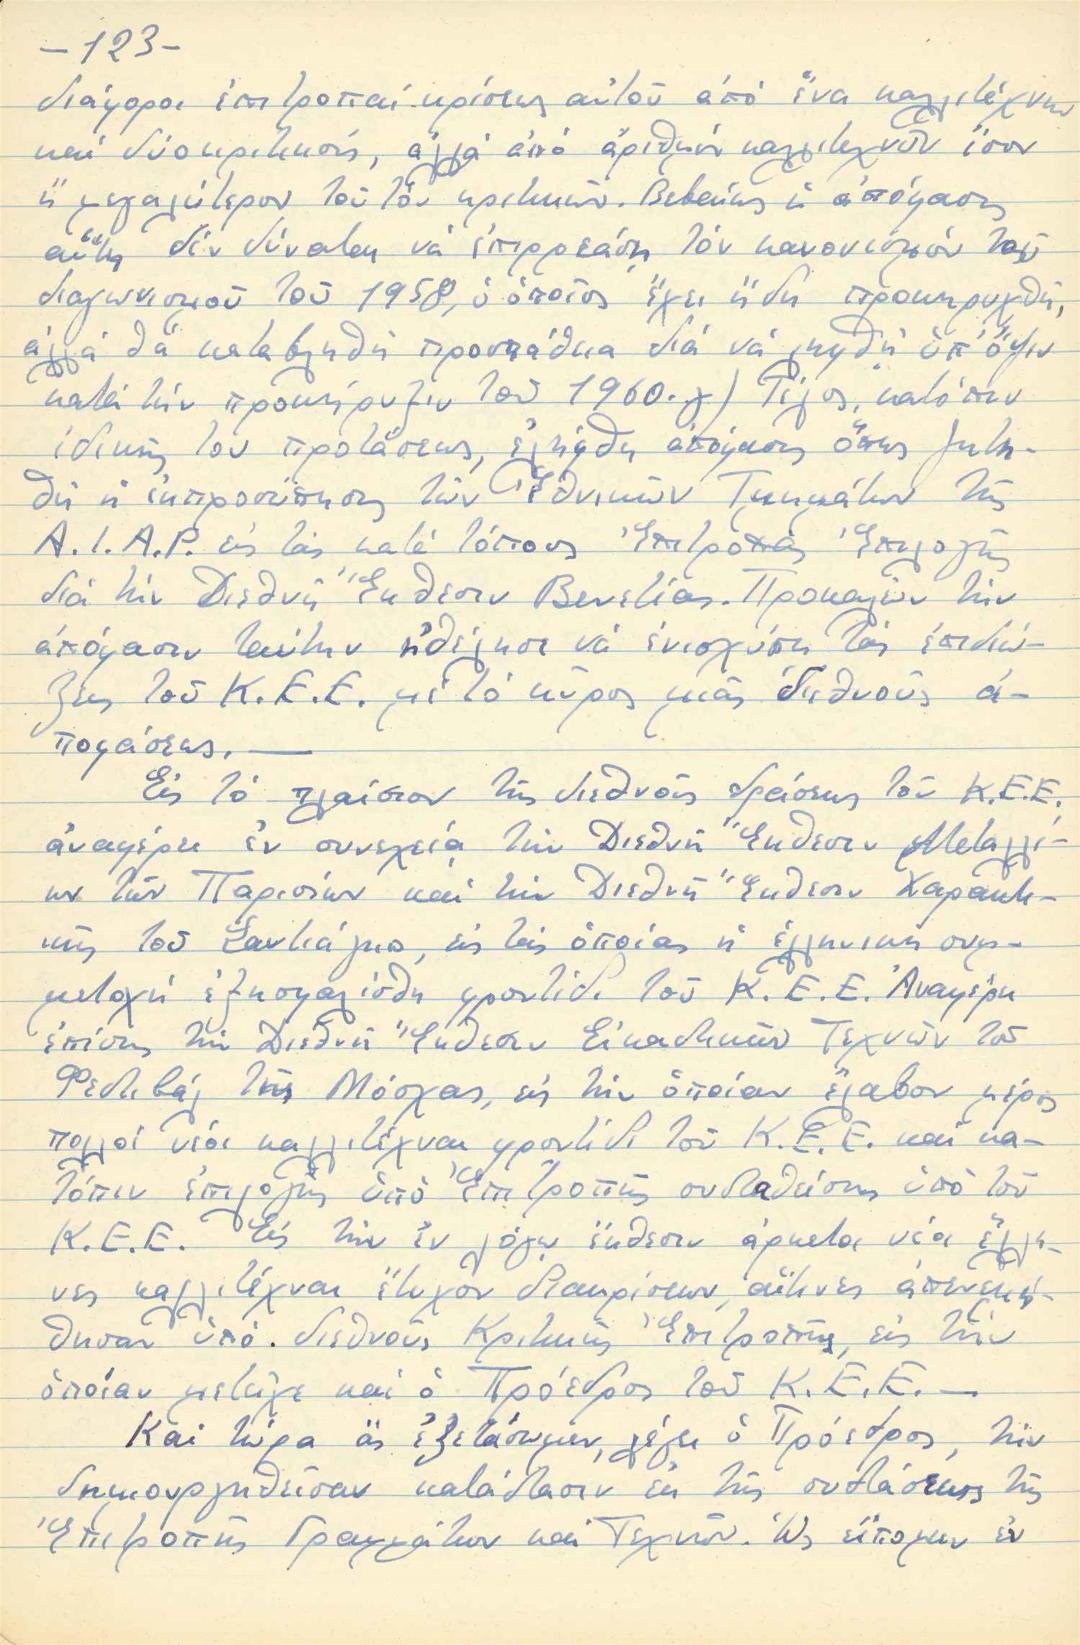 -123-
διάφοροι ἐπιτροπαί κρίσεως αὐτοῦ ἀπό ἕνα καλλιτέχνην
καί δύο κριτικούς, ἀλλά ἀπό ἀριθμόν καλλιτεχνῶν ἴσον
ἤ μεγαλύτερον τοῦ τῶν κριτικῶν. Βεβαίως ἡ ἀπόφασις
αὕτη δέν δύναται νά ἐπιρρεάσῃ τόν κανονισμόν τοῦ
διαγωνισμοῦ τοῦ 1958, ὁ ὁποῖος ἔχει ἤδη προκηρυχθῆ,
ἀλλά θά καταβληθῆ προσπάθεια διά νά ληφθῆ ὑπ' ὄψιν
κατά τήν προκήρυξιν τοῦ 1960. γ) Τέλος, κατόπιν
ἰδικῆς του προτάσεως, ἐλήφθη ἀπόφασις ὅπως ζητη-
θῆ ἡ ἐκπροσώπησις τῶν Ἐθνικῶν Τμημάτων τῆς
A.I.A.P. εἰς τάς κατά τόπους Ἐπιτροπάς Ἐπιλογῆς
διά τήν Διεθνῆ Ἔκθεσιν Βενετίας. Προκαλῶν τήν
ἀπόφασιν ταύτην ἠθέλησε νά ἐνισχύσῃ τάς ἐπιδιώ-
ξεις τοῦ Κ.Ε.Ε. μέ τό κῦρος μιᾶς διεθνοῦς ἀ-
ποφάσεως.—
Εἰς τό πλαίσιον τῆς διεθνοῦς δράσεως τοῦ Κ.Ε.Ε.
ἀναφέρει ἐν συνεχείᾳ τήν Διεθνῆ Ἔκθεσιν Μεταλλί-
ων τῶν Παρισίων καί τήν Διεθνῆ Ἔκθεσιν Χαρακτι-
κῆς τοῦ Σαντιάγκο, εἰς τάς ὁποίας ἡ ἑλληνική συμ-
μετοχή ἐξησφαλίσθη φροντίδι τοῦ Κ.Ε.Ε. Ἀναφέρει
ἐπίσης τήν Διεθνῆ Ἔκθεσιν Εἰκαστικῶν Τεχνῶν τοῦ
Φεστιβάλ τῆς Μόσχας, εἰς τήν ὁποίαν ἔλαβον μέρος
πολλοί νέοι καλλιτέχναι φροντίδι τοῦ Κ.Ε.Ε. καί κα-
τόπιν ἐπιλογῆς ὑπό Ἐπιτροπῆς συσταθείσης ὑπό τοῦ
Κ.Ε.Ε. Εἰς τήν ἐν λόγῳ ἔκθεσιν ἀρκετοι νέοι ἕλλη-
νες καλλιτέχναι ἔτυχον διακρίσεων, αἵτινες ἀπενεμή-
θησαν ὑπό. διεθνοῦς Κριτικῆς Ἐπιτροπῆς, εἰς τήν
ὁποίαν μετεῖχε καί ὁ Πρόεδρος τοῦ Κ.Ε.Ε.—
Καί τώρα ἄς ἐξετάσωμεν, λέγει ὁ Πρόεδρος, τήν
δημιουργηθεῖσαν κατάστασιν ἐκ τῆς συστάσεως τῆς
Ἐπιτροπῆς Γραμμάτων καί Τεχνῶν. Ὡς εἴπομεν ἐν